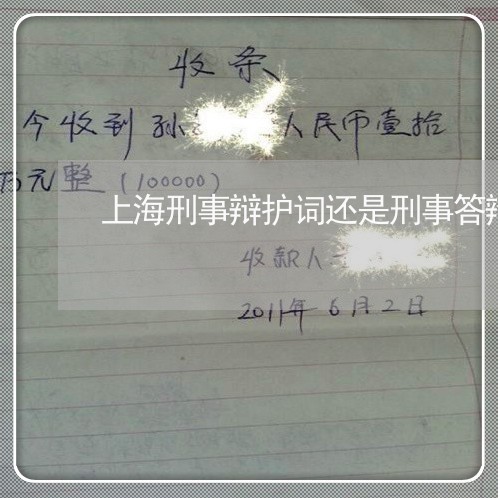 收条
今收到孙 人民币壹拾
万元整（100000）
上海刑事辩护词还是刑事答辩
收款人
2011年6月2日